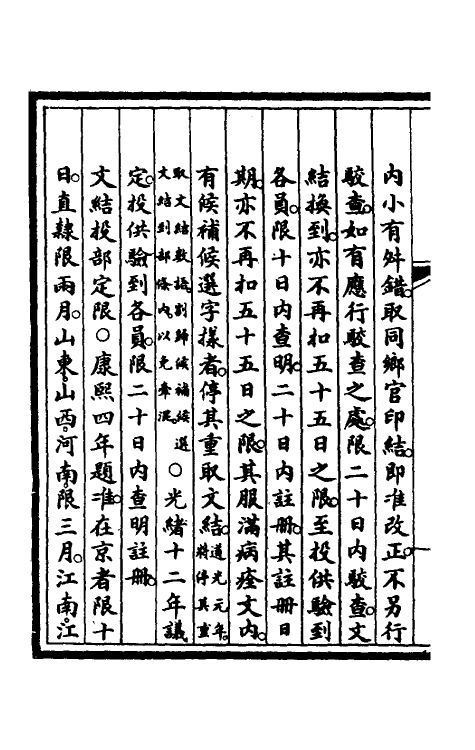 內小有舛錯。取同鄉官印結。即准改正。不另行
駮查。如有應行駮查之處。限二十日內駮查。文
結換到。亦不再扣五十五日之限。至投供驗到
各員。限十日內查明。二十日內註冊。其註冊日
期。亦不再扣五十五日之限。其服滿病痊文內。
有候補候選字樣者。停其重取文結。道光元年。將停其重
取文結數語刪歸候補候選文結到部條內以免牽混。○光緒十二年議
定。投供驗到各員。限二十日內查明註冊。
文結投部定限○康熙四年題准。在京者限十
日。直隸限兩月。山東。山西。河南。限三月。江南。江